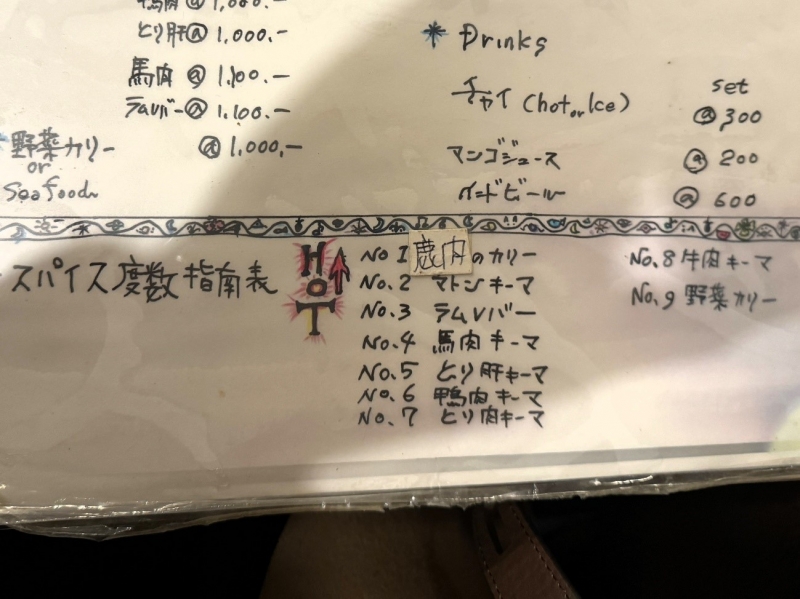 鴨肉 @ 1,000.-
とり肝 @ 1,000.-
馬肉 @ 1,100.-
ラムレバー @ 1,100.-
野菜カリー @ 1,000.-
or
Seafood
* Drinks
set
チャイ (hot or Ice) @ 300
マンゴジュース @ 200
インドビール @ 600
スパイス度数指南表
HOT
No 1 鹿肉のカリー
No.2 マトンキーマ
No.3 ラムレバー
No.4 馬肉キーマ
No.5 とり肝キーマ
No.6 鴨肉キーマ
No.7 とり肉キーマ
No.8 牛肉キーマ
No.9 野菜カリー